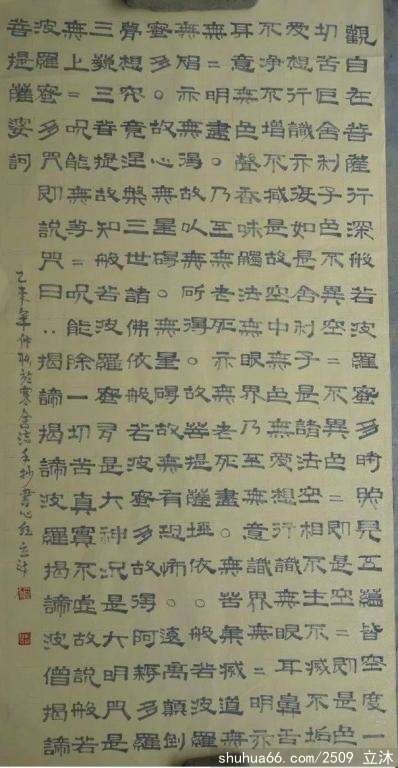 觀自在菩薩行深般若波羅蜜多時照見五蘊皆空度一
切苦厄舍利子色不異空=不異色=即是空=即是色
愛想行識亦復如是舍利子是諸法空相不生不滅不垢
不淨不增不減是故空中無色無愛想行識無眼耳鼻舌
耳意無色聲香味觸法無眼界乃至無意識界無=明亦
無=明盡乃至無老死亦無老死盡。無苦集滅道
無=亦無得。以無所得故菩提薩埵依。般若波羅
蜜多。故心無罣礙無罣礙故無有恐怖。遠離顛倒
夢想究竟涅槃三世諸佛依般若波羅蜜多故得阿耨多羅
三藐三菩提故知般若波羅蜜多是大神況是大明咒是
無上=呪能無等=呪能除一切苦真實不虛故說般若
波羅蜜多咒即說咒曰:揭諦揭諦波羅揭諦波僧揭諦
菩提薩婆訶
乙未年仲秋於寒舍手抄書心經立沐
shuhua66.com/2509 立沐